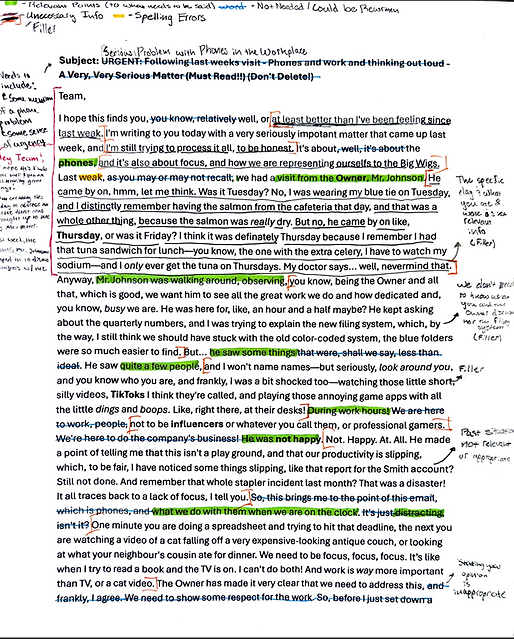 - Relevant Points (to what needs to be said) word - Not Needed / Could be Rewritten
Unnecessary Info - Spelling Errors
Filler
Serious Problem with Phones in the Workplace
Subject: URGENT: Following last weeks visit - Phones and work and thinking out loud -
A Very, Very Serious Matter (Must Read!!) (Don't Delete!)
Team,
I hope this finds you, you know, relatively well, or at least better than I've been feeling since
last week. I'm writing to you today with a very seriously impotant matter that came up last
week, and I'm still trying to process it all, to be honest. It's about, well, it's about the
phones, and it's also about focus, and how we are representing ourself to the Big Wigs.
Last weak, as you may or may not recall, we had a visit from the Owner, Mr. Johnson. He
came by on, hmm, let me think. Was it Tuesday? No, I was wearing my blue tie on Tuesday,
and I distinctly remember having the salmon from the cafeteria that day, and that was a
whole other thing, because the salmon was really dry. But no, he came by on like,
Thursday, or was it Friday? I think it was definately Thursday because I remember I had
that tuna sandwich for lunch—you know, the one with the extra celery, I have to watch my
sodium—and I only ever get the tuna on Thursdays. My doctor says... well, nevermind that.
Anyway, Mr. Johnson was walking around, observing, you know, being the Owner and all
that, which is good, we want him to see all the great work we do and how dedicated and,
you know, busy we are. He was here for, like, an hour and a half maybe? He kept asking
about the quarterly numbers, and I was trying to explain the new filing system, which, by
the way, I still think we should have stuck with the old color-coded system, the blue folders
were so much easier to find. But... he saw some things that were, shall we say, less than
ideal. He saw quite a few people, and I won't name names—but seriously, look around you,
and you know who you are, and frankly, I was a bit shocked too—watching those little short,
silly videos, TikToks I think they're called, and playing those annoying game apps with all
the little dings and boops. Like, right there, at their desks! During work hours! We are here
to work, people, not to be influencers or whatever you call them, or professional gamers.
We're here to do the company's business! He was not happy. Not. Happy. At. All. He made
a point of telling me that this isn't a play ground, and that our productivity is slipping,
which, to be fair, I have noticed some things slipping, like that report for the Smith account?
Still not done. And remember that whole stapler incident last month? That was a disaster!
It all traces back to a lack of focus, I tell you. So, this brings me to the point of this email,
which is phones, and what we do with them when we are on the clock. It's just distracting,
isn't it? One minute you are doing a spreadsheet and trying to hit that deadline, the next you
are watching a video of a cat falling off a very expensive-looking antique couch, or looking
at what your neighbour's cousin ate for dinner. We need to focus, focus, focus. It's like
when I try to read a book and the TV is on. I can't do both! And work is way more important
than TV, or a cat video. The Owner has made it very clear that we need to address this, and
frankly, I agree. We need to show some respect for the work. So, before I just set down a
words to
include:
of a phone
problem
some sense
of urgency
Hey Team!
The specific
day + what
you ate
info
(Filler)
we don't need
to know
(Filler)
Filler
Past situation
not relevant
or appropriate
Stating your
opinion is
inappropriate